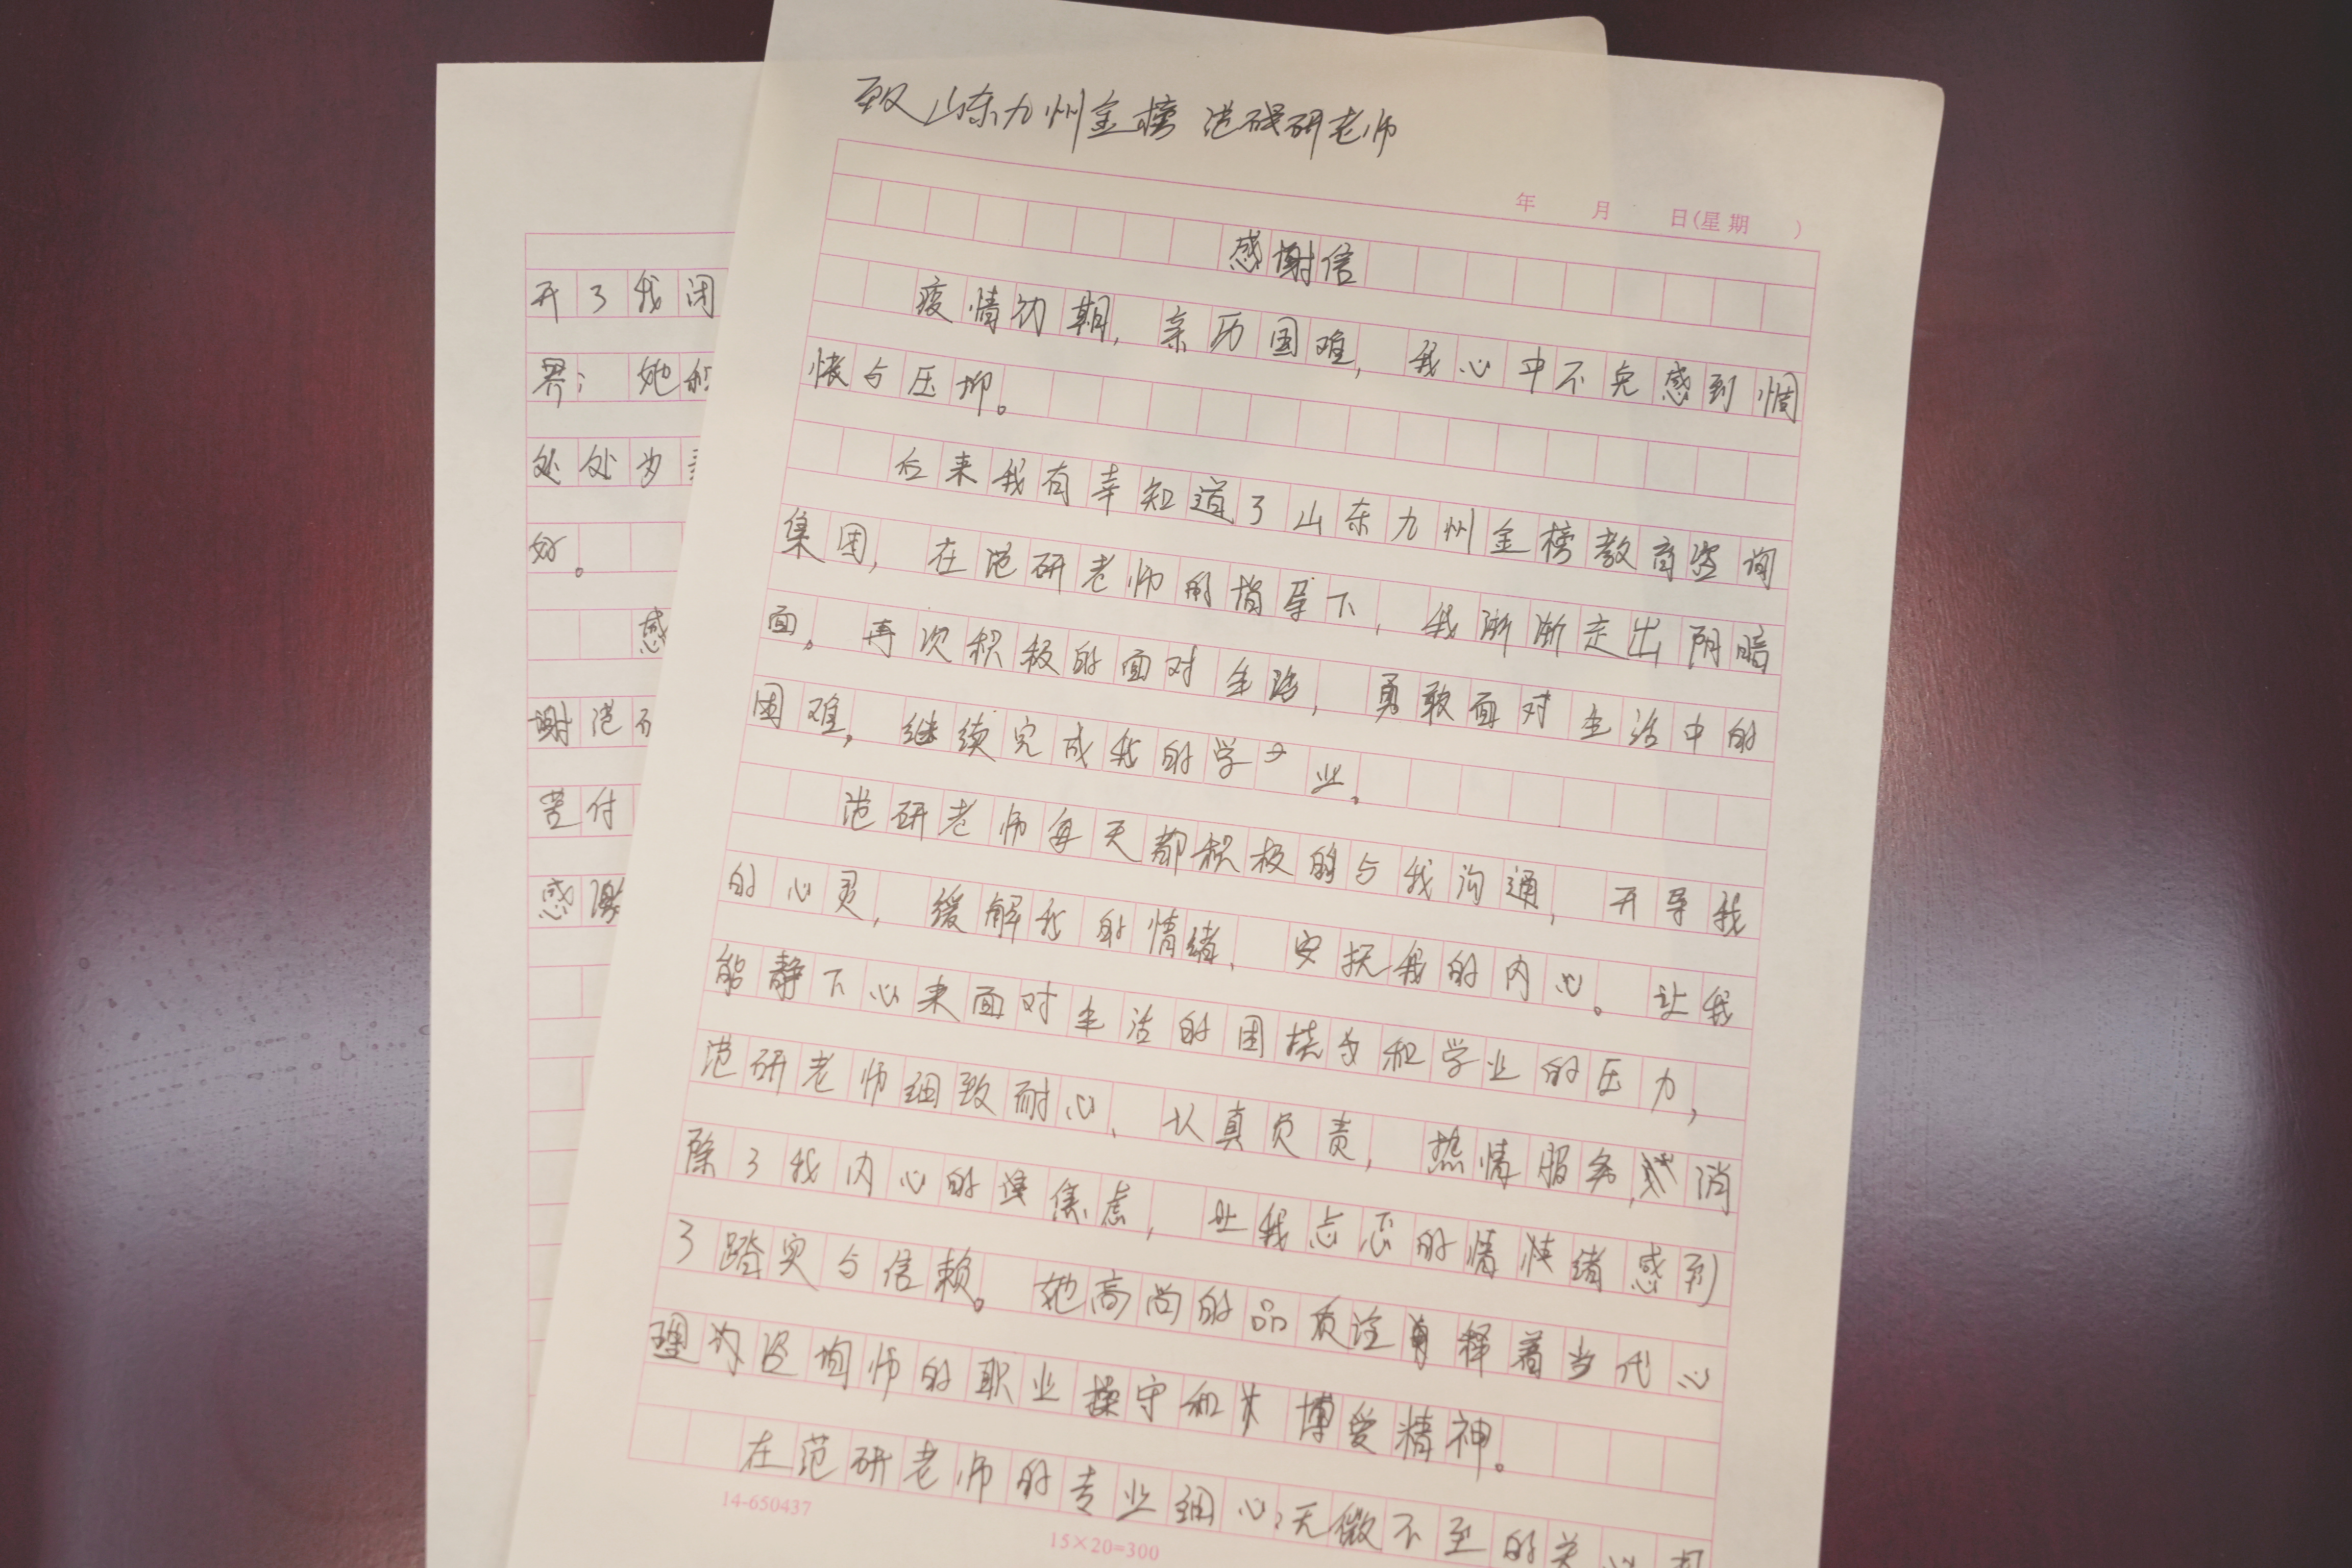 致山东九州金榜 范研老师
年 月 日(星期 )
感谢信
疫情初期,亲历困难,我心中不免感到惆
怅与压抑。
后来我有幸知道了山东九州金榜教育咨询
集团,在范研老师的指导下,我渐渐走出阴暗
面。再次积极的面对生活,勇敢面对生活中的
困难,继续完成我的学业。
范研老师每天都积极的与我沟通,开导我
的心灵,缓解我的情绪、安抚我的内心。让我
能静下心来面对生活的困扰和学业的压力,
范研老师细致耐心、认真负责,热情服务,消
除了我内心的焦虑,让我忐忑的情绪感到
了踏实与信赖。她高尚的品质诠释着当代心
理咨询师的职业操守和博爱精神。
在范研老师的专业细心,无微不至的关心
14-650437
15×20=300
开了我闭
界;她积
处处为
好。
感
谢范研
苦付
感谢